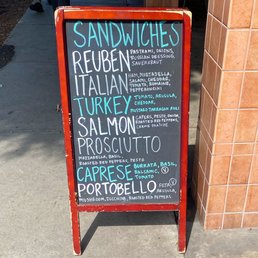 SANDWICHES
REUBEN PASTRAMI, ONIONS,
RUSSIAN DRESSING,
SAUERKRAUT
ITALIAN HAM, MORTADELLA,
SALAMI, CHEDDAR,
TOMATO, ROMAINE,
PEPPERONCINI
TURKEY TOMATO, ARUGULA,
CHEDDAR,
MUSTARD TARRAGON AIOLI
SALMON CAPERS, PESTO, ONION,
ROASTED RED PEPPERS,
CREME FRAICHE
PROSCIUTTO
MOZZARELLA, BASIL,
ROASTED RED PEPPERS, PESTO
CAPRESE BURRATA, BASIL,
BALSAMIC, V
TOMATO
PORTOBELLO FETA, V
ARUGULA,
MUSHROOM, ZUCCHINI, ROASTED RED PEPPERS